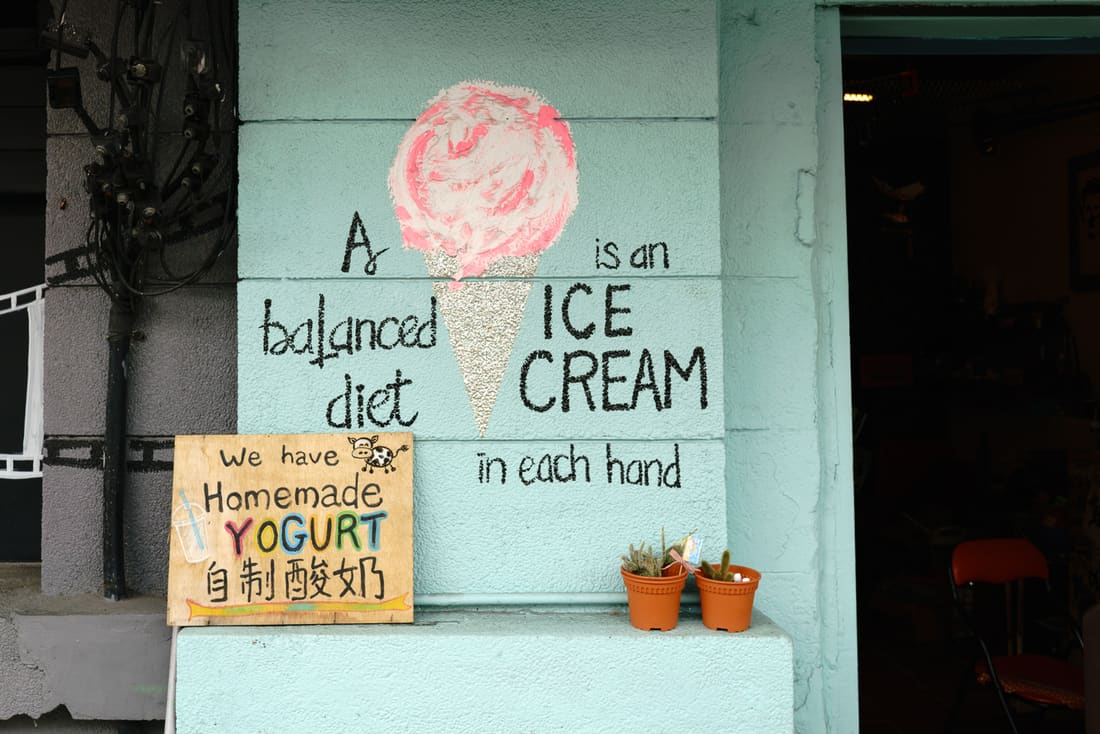 A
balanced
diet
is an
ICE
CREAM
in each hand
We have
Homemade
YOGURT
自制酸奶